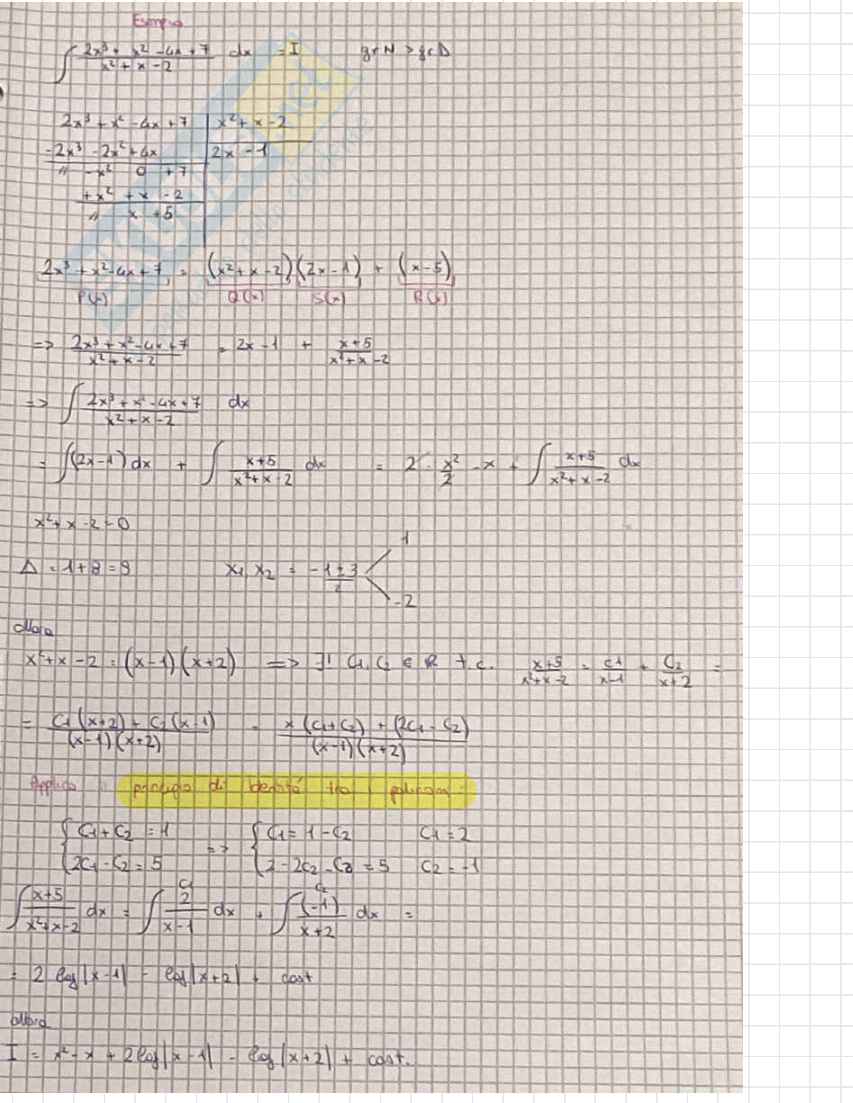 Esempio
∫ (2x³ + x² - 4x + 7)/(x² + x - 2) dx = I gr N > gr D
2x³ + x² - 4x + 7 | x² + x - 2
-2x³ - 2x² + 4x | 2x - 1
// -x² 0 + 7
+x² + x - 2
// x + 5
2x³ + x² - 4x + 7 = (x² + x - 2)(2x - 1) + (x - 5)
P(x) Q(x) S(x) R(x)
=> (2x³ + x² - 4x + 7)/(x² + x - 2) = 2x - 1 + (x + 5)/(x² + x - 2)
=> ∫ (2x³ + x² - 4x + 7)/(x² + x - 2) dx
= ∫(2x - 1) dx + ∫ (x + 5)/(x² + x - 2) dx = 2 · x²/2 - x + ∫ (x + 5)/(x² + x - 2) dx
x² + x - 2 = 0
1
Δ = 1 + 8 = 9 x₁, x₂ = (-1 ± 3)/2
-2
allora
x² + x - 2 = (x - 1)(x + 2) => ∃! C₁, C₂ ∈ R t.c. (x + 5)/(x² + x - 2) = C₁/(x - 1) + C₂/(x + 2) =
= (C₁(x + 2) + C₂(x - 1))/((x - 1)(x + 2)) = (x(C₁ + C₂) + (2C₁ - C₂))/((x - 1)(x + 2))
Applico principio di identità tra i polinomi:
{ C₁ + C₂ = 1 => { C₁ = 1 - C₂ C₁ = 2
{ 2C₁ - C₂ = 5 { 2 - 2C₂ - C₂ = 5 C₂ = -1
C₁ C₂
∫ (x + 5)/(x² + x - 2) dx = ∫ 2/(x - 1) dx + ∫ (-1)/(x + 2) dx =
= 2 log|x - 1| - log|x + 2| + cost
allora
I = x² - x + 2 log|x - 1| - log|x + 2| + cost.